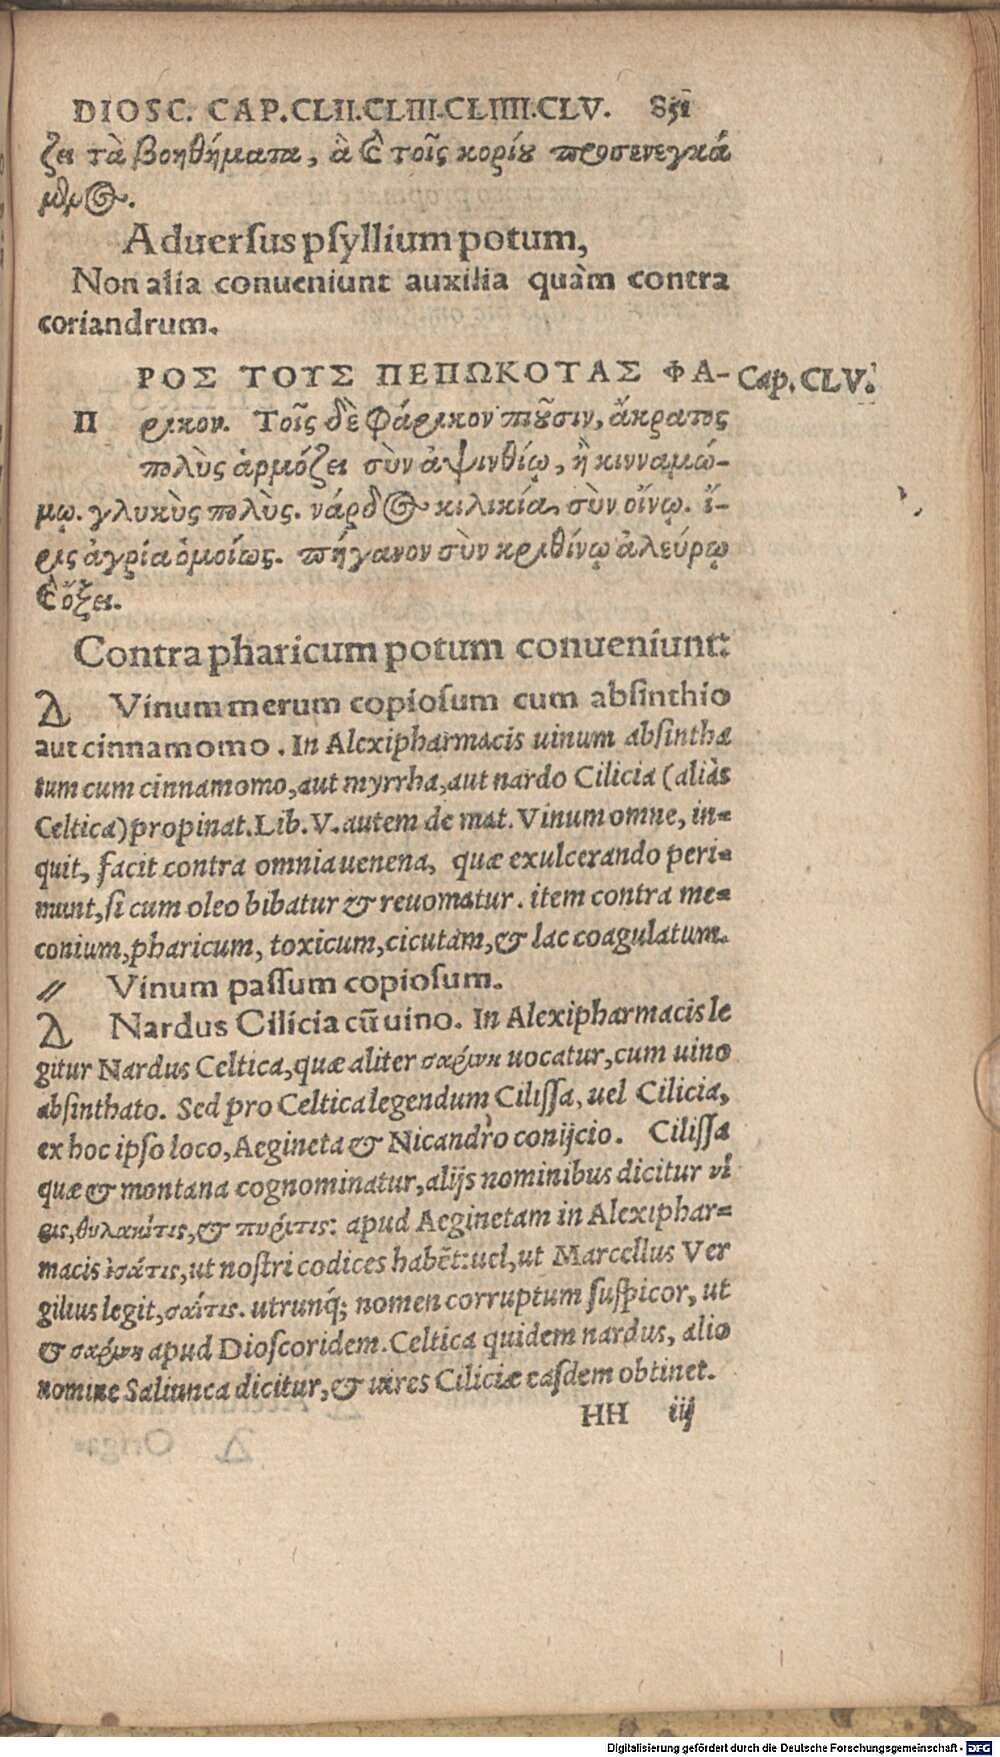 DIOSC. CAP.CLII.CLIII.CLIIII.CLV. 851
ζει τὰ βοηθήματα, ἃ καὶ τοῖς κορίου προσενεγκά
μενος.
Aduersus psyllium potum,
Non alia conueniunt auxilia quàm contra
coriandrum.
ΡΟΣ ΤΟΥΣ ΠΕΠΩΚΟΤΑΣ ΦΑ- Cap. CLV.
Π ρικον. Τοῖς δὲ Φάρικον πιοῦσιν, ἄκρατος
πολὺς ἁρμόζει σὺν ἀψινθίῳ, ἢ κινναμώ-
μῳ. γλυκὺς πολὺς. νάρδος κιλικία, σὺν οἴνῳ. ἴ-
ρις ἀγρία ὁμοίως. πήγανον σὺν κριθίνῳ ἀλεύρῳ
καὶ ὄξει.
Contra pharicum potum conueniunt:
Δ Vinum merum copiosum cum absinthio
aut cinnamomo. In Alexipharmacis uinum absintha
tum cum cinnamomo, aut myrrha, aut nardo Cilicia (aliàs
Celtica) propinat. Lib. V. autem de mat. Vinum omne, in=
quit, facit contra omnia uenena, quæ exulcerando peri=
munt, si cum oleo bibatur & reuomatur. item contra me=
conium, pharicum, toxicum, cicutam, & lac coagulatum.
〃 Vinum passum copiosum.
Δ Nardus Cilicia cũ uino. In Alexipharmacis le
gitur Nardus Celtica, quæ aliter σαρίωκ uocatur, cum uino
absinthato. Sed pro Celtica legendum Cilissa, uel Cilicia,
ex hoc ipso loco, Aegineta & Nicandro conijcio. Cilissa
quæ & montana cognominatur, alijs nominibus dicitur νῖ
εις, θυλακῖτις, & πυρίτις: apud Aeginetam in Alexiphar=
macis ἰσάτις, ut nostri codices habẽt: uel, ut Marcellus Ver
gilius legit, σαίτις. utrunq; nomen corruptum suspicor, ut
& σαρίωκ apud Dioscoridem. Celtica quidem nardus, alio
nomine Saliunca dicitur, & uires Ciliciæ easdem obtinet.
HH iij
Digitalisierung gefördert durch die Deutsche Forschungsgemeinschaft - DFG